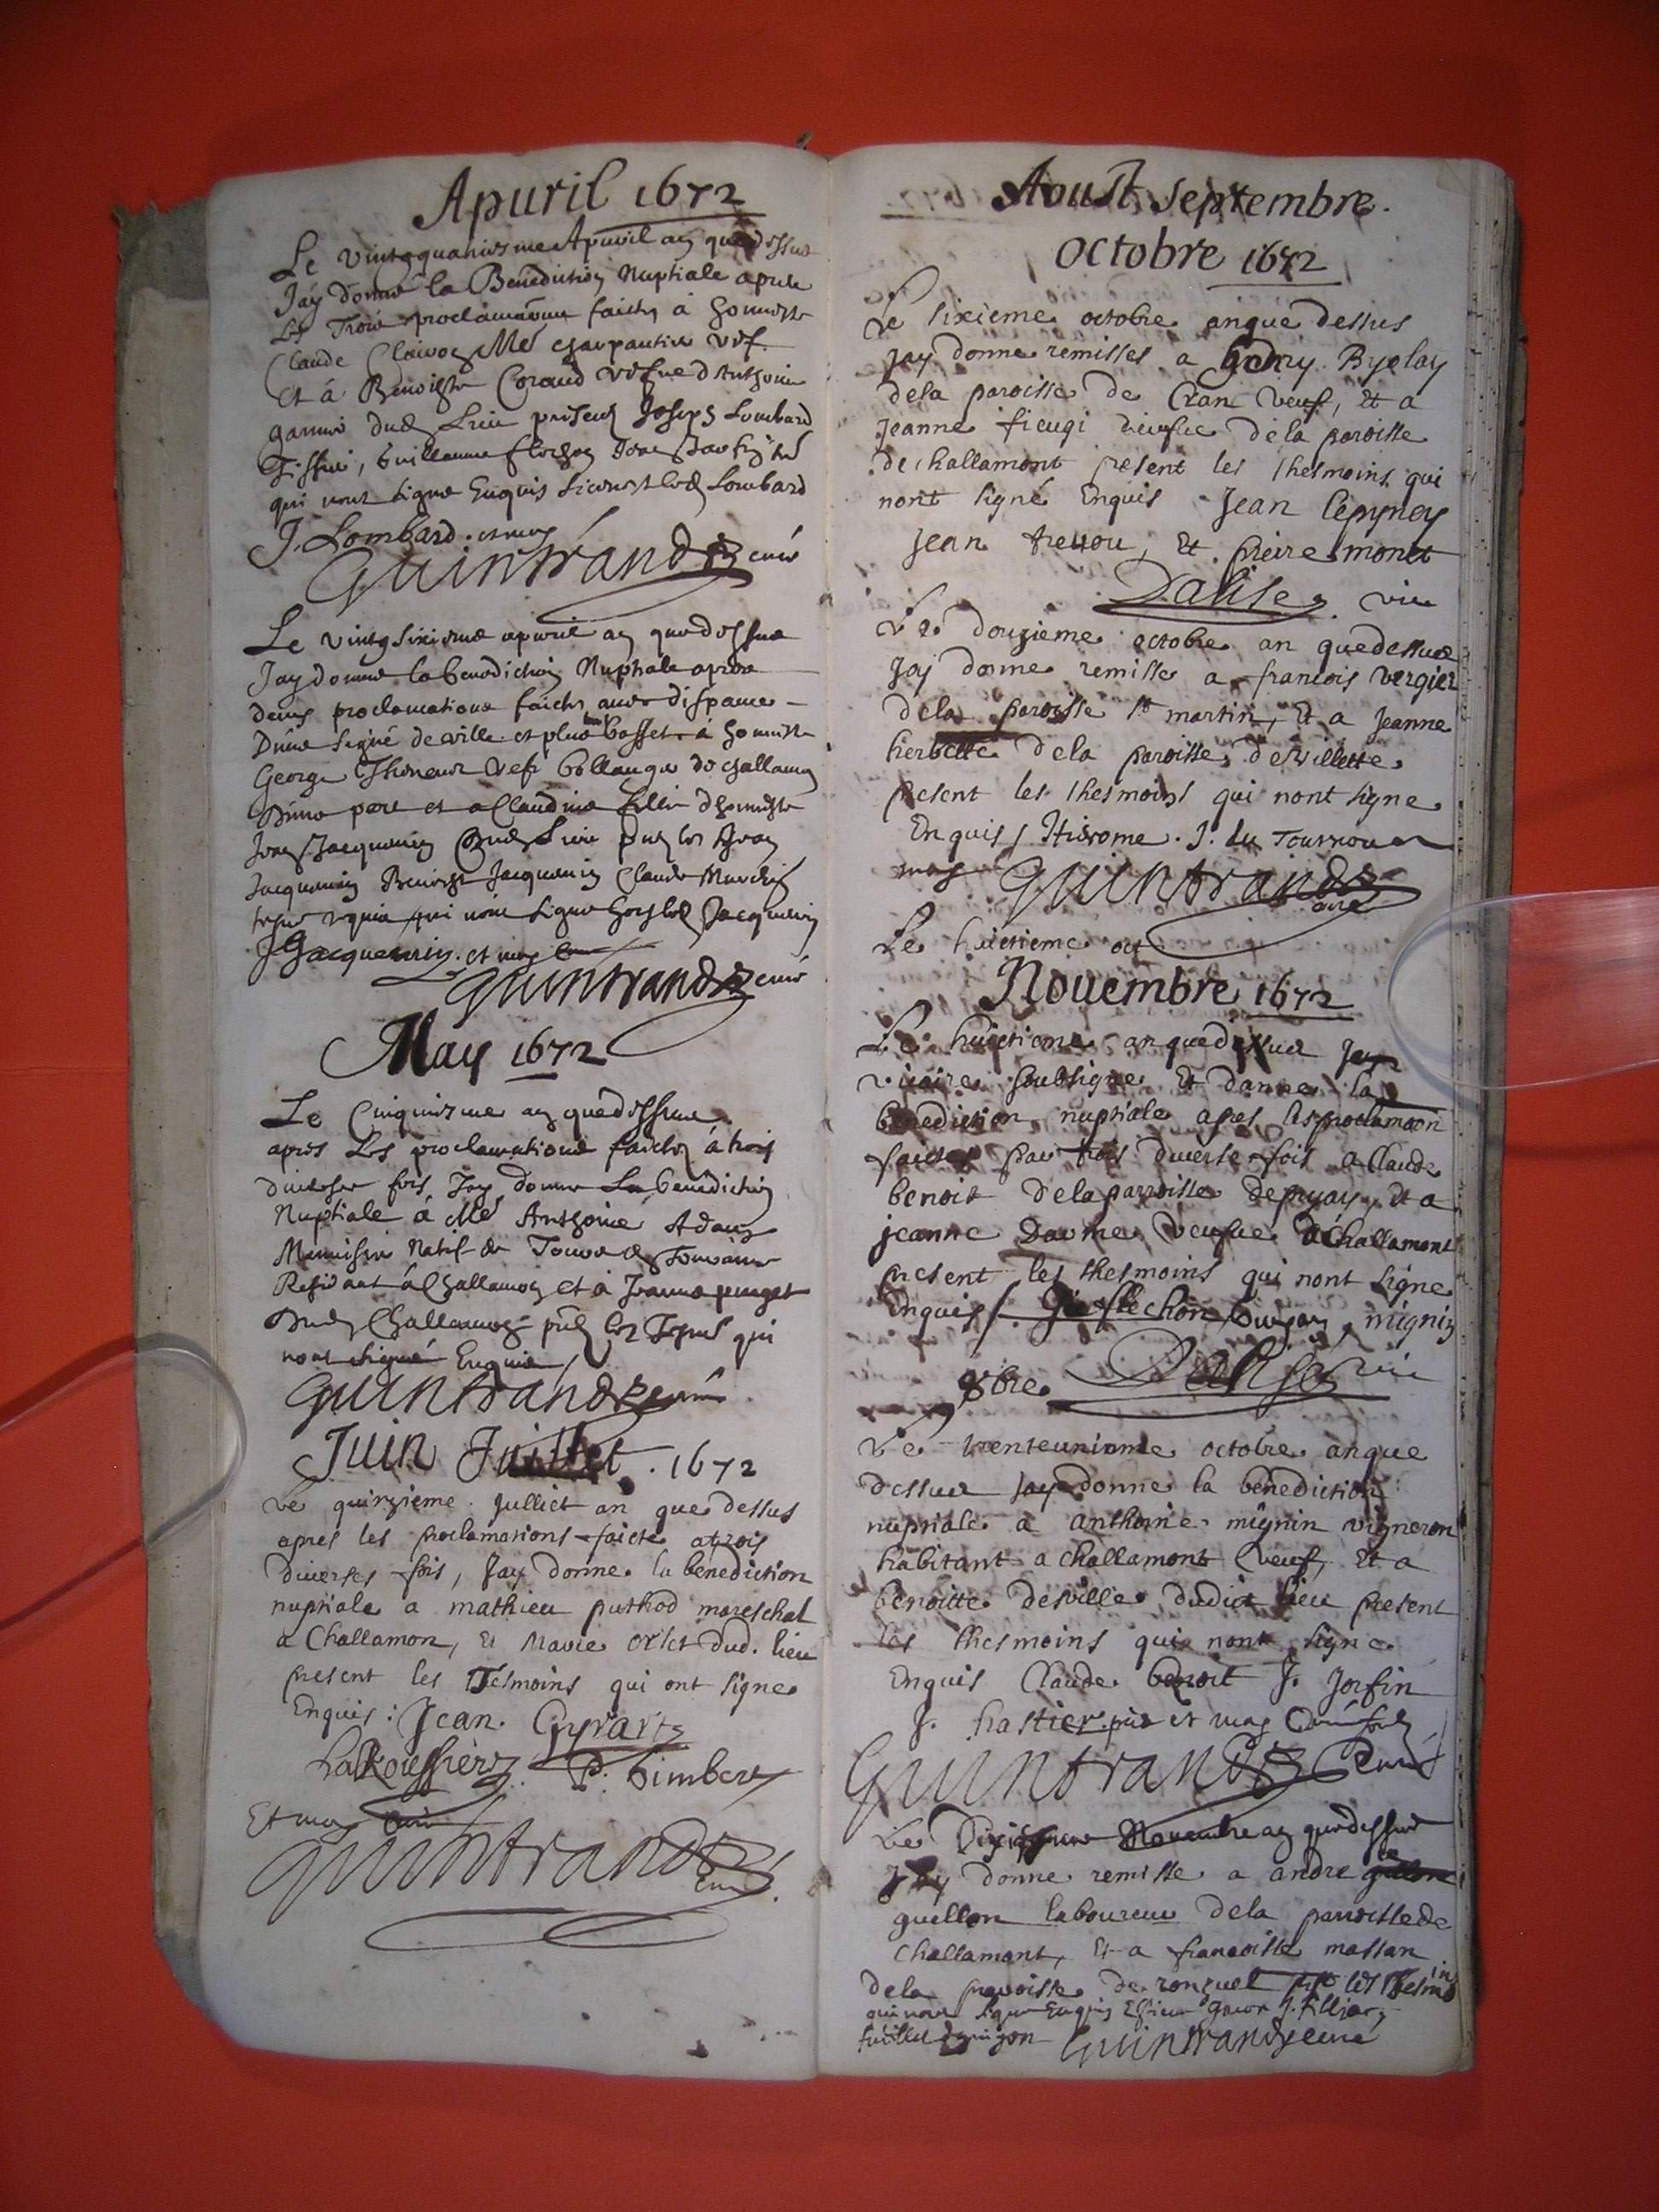 Apuril 1672
Le vintgquatriesme Apuril an que dessus
Jay donné la Benediction Nuptiale apres
Les Trois proclamaons faictes à honneste
Claude Mé charpantier vef
et à Benoiste Coraud vefve d'Anthoine
garnier dud Lieu presens Joseph Lombard
Tissier, Guillaume flochon
qui nont signe Enquis sieurs led Lombard
J. Lombard. et moy
Guintrandz curé
Le vintg sixiesme apuril an que dessus
Jay donné la benediction Nuptiale apres
deux proclamations faictes avec dispance
Dune signé deville et plus bas à honneste
George vef bollanger de challamon
Dune part et a Claudine fille d'honneste
Jean Jacquemin dud Lieu pnts les Jean
Jacquemin Benoist Jacquemin Claude
qui nont signe led Jacquemin
J Jacquemin. et moy
Guintrandz curé
May 1672
Le Cinquiesme an que dessus
apres Les proclamations faictes à trois
diverses fois Jay donne La benediction
Nuptiale à Me Anthoine Adam
Menuisier Natif de
Residant à Challamon et à Jeanne puget
Dud Challamon pnts les Tesms qui
nont signé Enquis /
Guintrandz curé
Juin Juillet. 1672
Le quinzieme. Julliet an que dessus
apres les proclamations faicte a trois
diverses fois, Jay donne la benediction
nuptiale a mathieu puthod mareschal
a Challamon, et Marie orlet dud. lieu
present les Tesmoins qui ont signe
Enquis: Jean. Gyrartz
LaRoussiere P. Gimbert
Et moy
Guintrandz
curé
Aoust Septembre.
octobre 1672
Le sixieme octobre anque dessus
jay donne remisses a Byolay
dela paroisse de Cran veuf, et a
Jeanne fieugi veufue dela paroisse
de challamont present les thesmoins qui
nont signé Enquis Jean
Jean trettou, Et pierre monet
Dalise vic
Le douzieme octobre an quedessus
Jaj donne remisse a francois vergier
dela paroisse st martin, et a Jeanne
herbette dela paroisse devillette
present les thesmoins qui nont signe
Enquis / Hierome. J. du Tournouer
moy Guintrandz
curé
Le huictieme oct
Nouembre 1672
Le huictieme anquedessus Jay
vicaire soubsigne Et donne la
benediction nuptiale apres les proclamaon
faictes par trois diverse fois a Claude
benoit dela parroisse depryay, et a
jeanne Darme veufue de Challamont
present les thesmoins qui nont signe
Enquis / flechon mignin
8bre Dalise vic
Le trenteunieme octobre anque
dessus Jay donne la benediction
nuptiale a anthoine mignin vigneron
habitant a challamont veuf, Et a
benoitte deville dudict lieu present
les thesmoins qui nont signe
Enquis Claude benoit J. Jorfin
J. hastier et moy
Guintrandz curé
Le Dixiesme Novembre an que dessus
Jay donne remisse a andre
guillon laboureur dela parroisse de
Challamont, Et a francoise massan
dela paroisse de ronzuel les Tesmoins
qui nont signe Enquis
Guintrandz curé